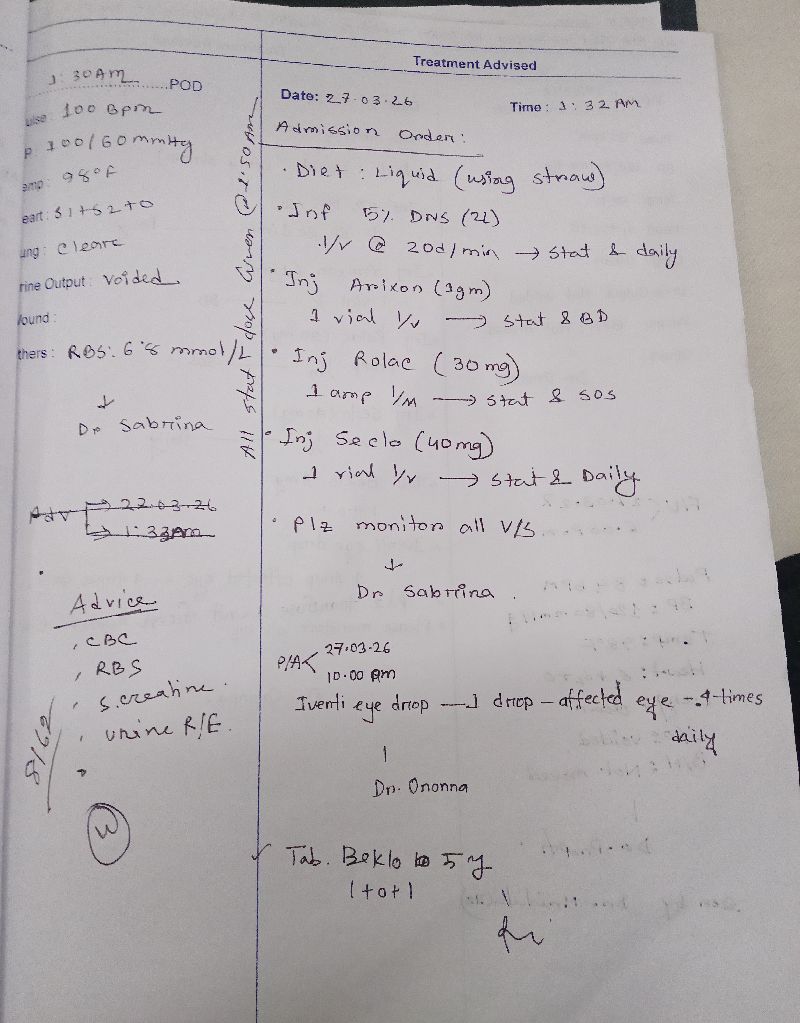 1:30AM POD
Pulse 100 Bpm
P 100/60 mmHg
emp: 98°F
eart: S1+S2+0
ung: Cleare
rine Output: Voided
ound:
thers: RBS: 6.8 mmol/L
Dr Sabrina
Adv 22.03.26
1:33AM
Advice
CBC
RBS
S.creatine
urine R/E.
All stat dose Given @ 1:50AM
Treatment Advised
Date: 27.03.26 Time: 1:32 AM
Admission Order:
• Diet: Liquid (using straw)
• Inf 5% DNS (2L)
I/V @ 20d/min → Stat & daily
• Inj Arixon (1gm)
1 vial I/V → Stat & BD
• Inj Rolac (30mg)
1 amp I/M → Stat & SOS
• Inj Seclo (40mg)
1 vial I/V → Stat & Daily
• Plz monitor all V/S
Dr Sabrina.
P/A< 27.03.26
10.00 AM
Iventi eye drop — 1 drop – affected eye – 4-times
daily
Dr. Ononna
Tab. Beklo 5 mg
1+0+1